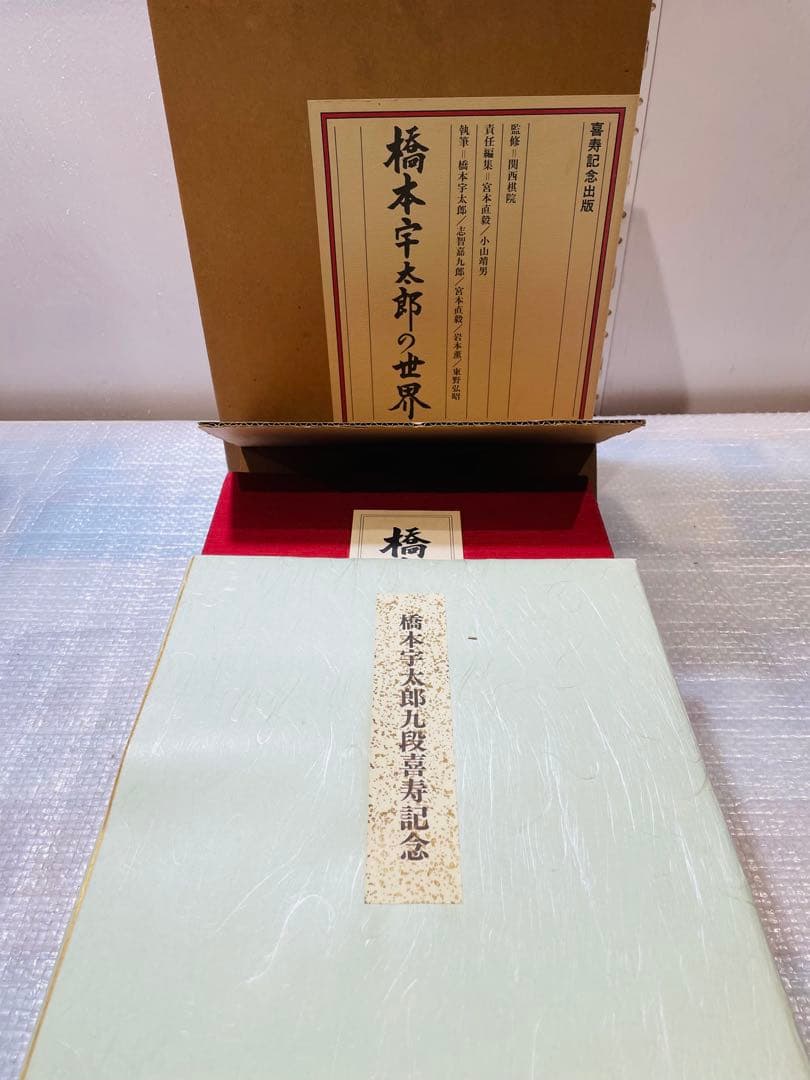 喜寿記念出版
監修＝関西棋院
責任編集＝宮本直毅／小山靖男
執筆＝橋本宇太郎／志智嘉九郎／宮本直毅／岩本薫／東野弘昭
橋本宇太郎の世界
橋
橋本宇太郎九段喜寿記念